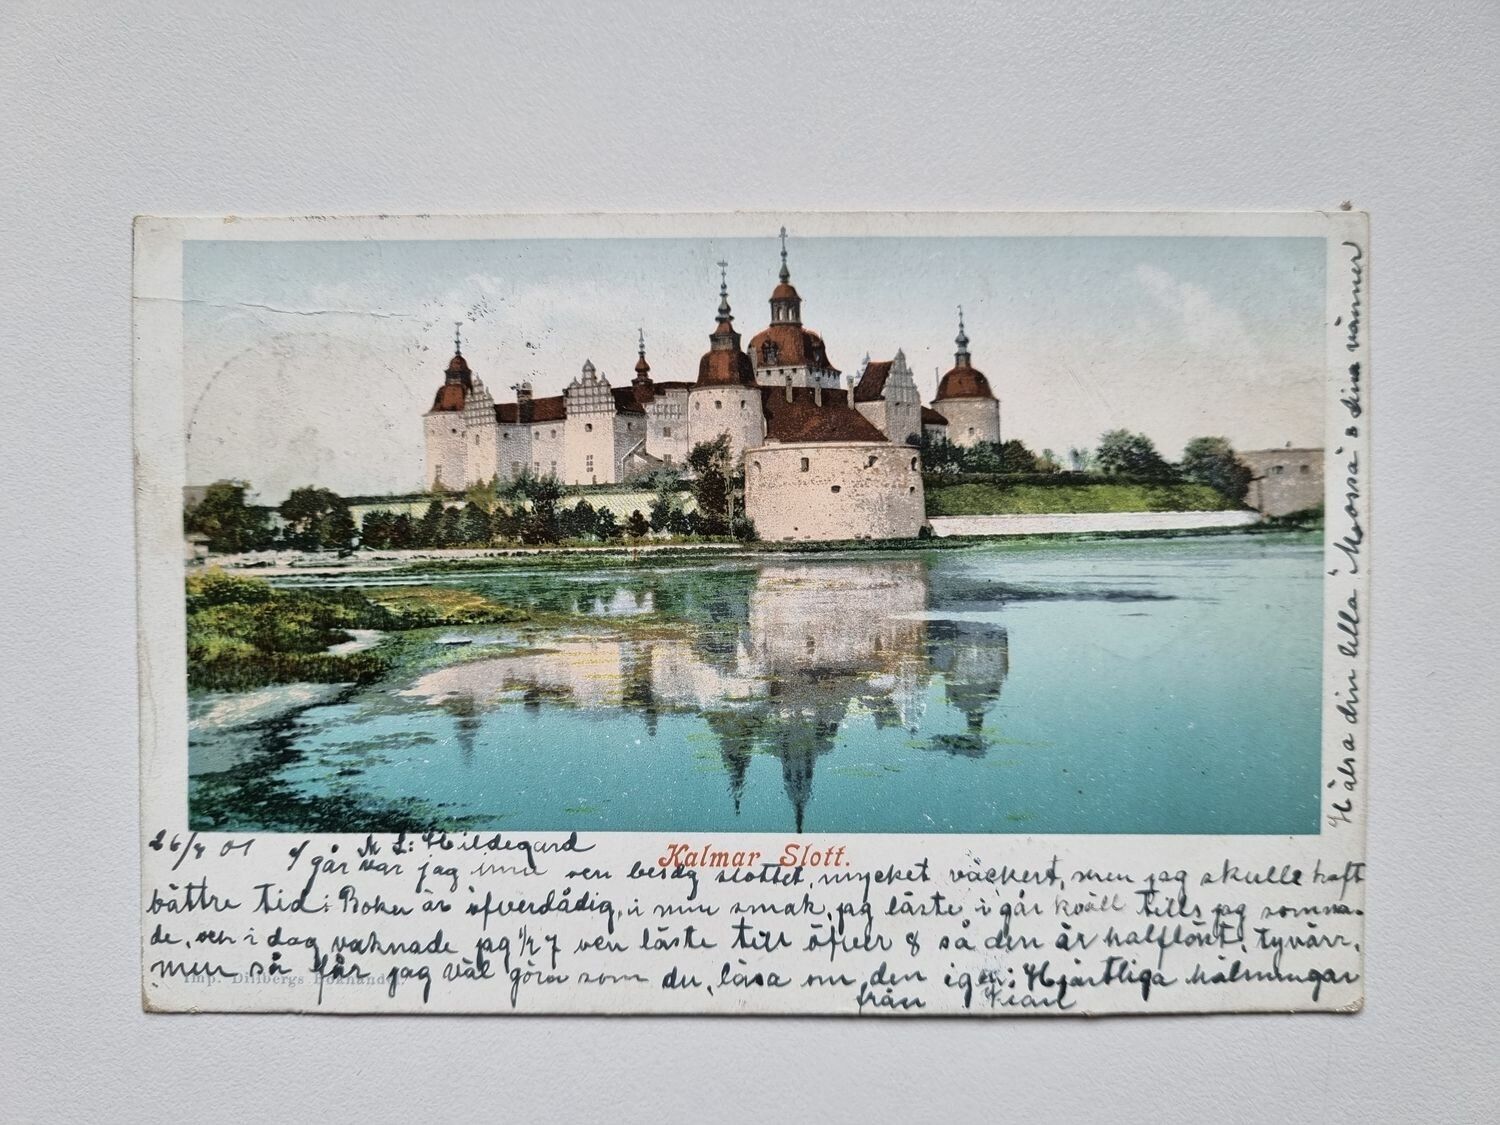 26/8 01 M L: Hildegard
Kalmar Slott.
I går var jag inne och besåg slottet, mycket vackert, men jag skulle haft
bättre tid: Boken är öfverdådig, i min smak, jag läste i går kväll tills jag somna-
de, och i dag vaknade jag 1/2 7 och läste till öfver 8 så den är halfläst, tyvärr,
men så får jag väl göra som du, läsa om den igen: Hjärtliga hälsningar
från
Imp. Dillbergs Bokhandel.
Hälsa din lilla Mossa o dina vänner